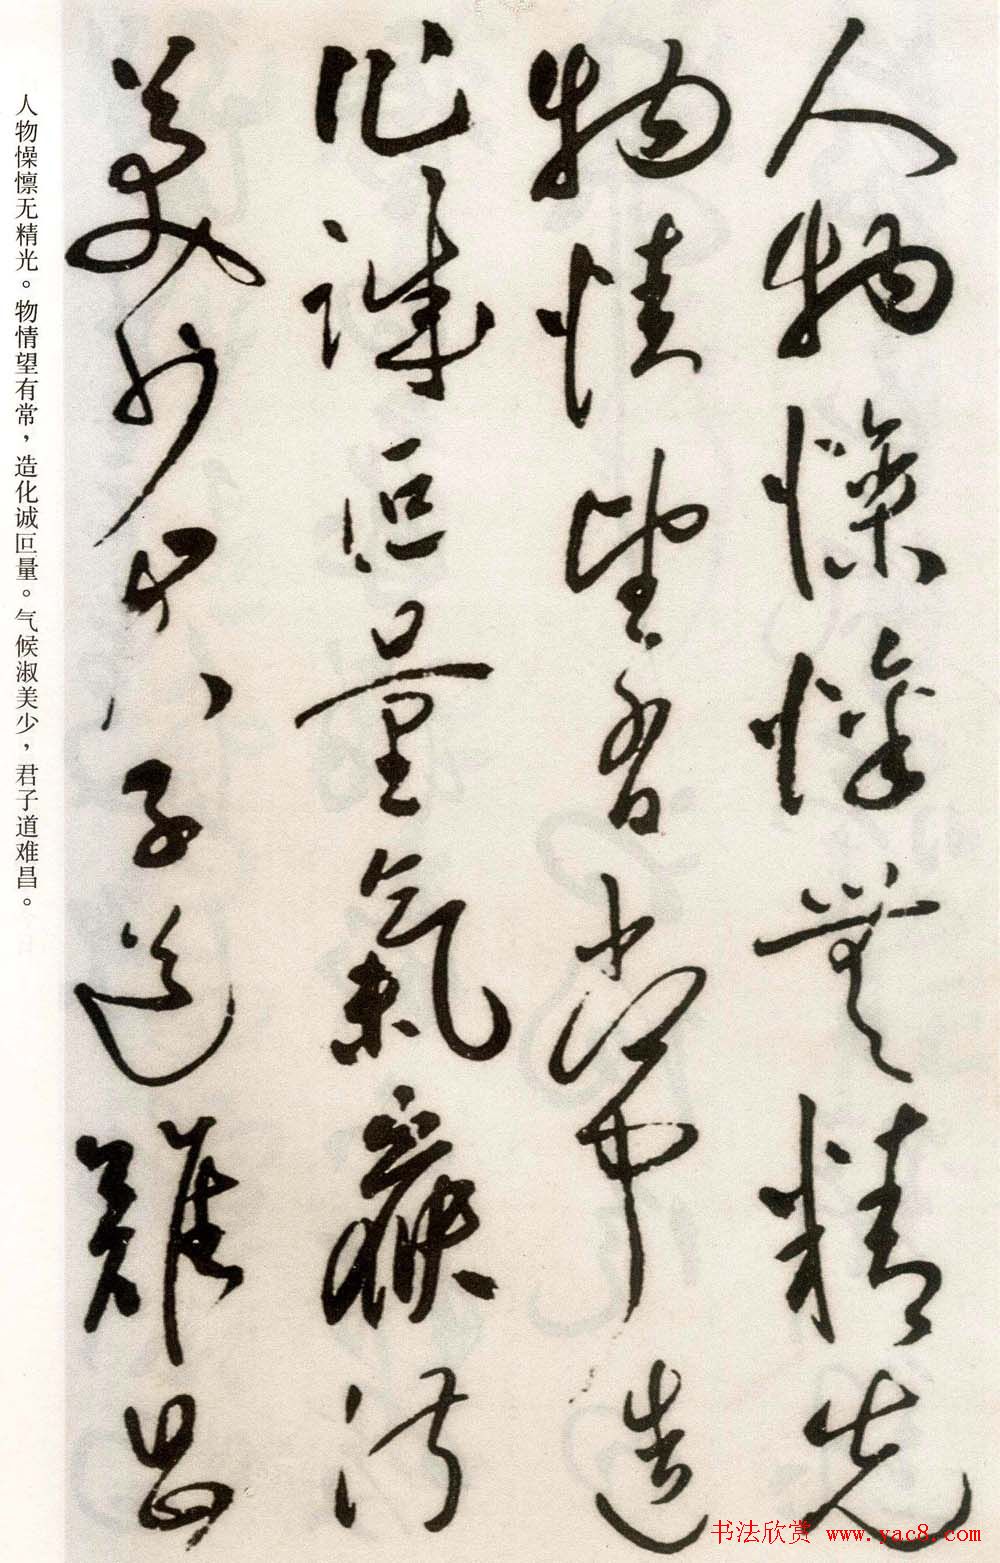 人物懆懍無精光
物情望有常造
化誠叵量氣候淑
美少君子道難昌
人物懆懔无精光。物情望有常，造化诚叵量。气候淑美少，君子道难昌。
书法欣赏 www.yac8.com